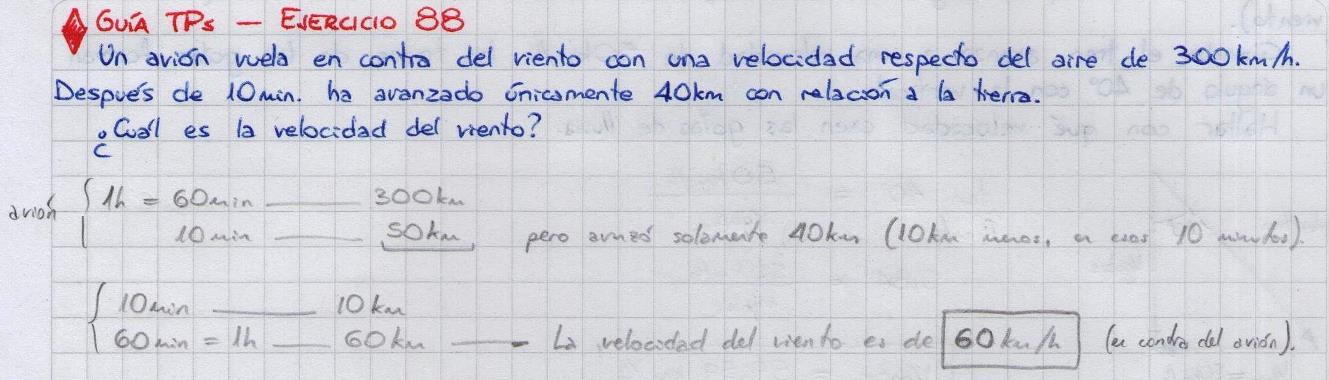 GUÍA TPs — EJERCICIO 88
Un avión vuela en contra del viento con una velocidad respecto del aire de 300 km/h.
Después de 10 min. ha avanzado únicamente 40 km con relación a la tierra.
¿Cuál es la velocidad del viento?
avión { 1h = 60 min —— 300 km
10 min —— 50 km pero avanzó solamente 40 km (10 km menos, en esos 10 minutos).
{ 10 min —— 10 km
60 min = 1h —— 60 km —— La velocidad del viento es de 60 km/h (en contra del avión).